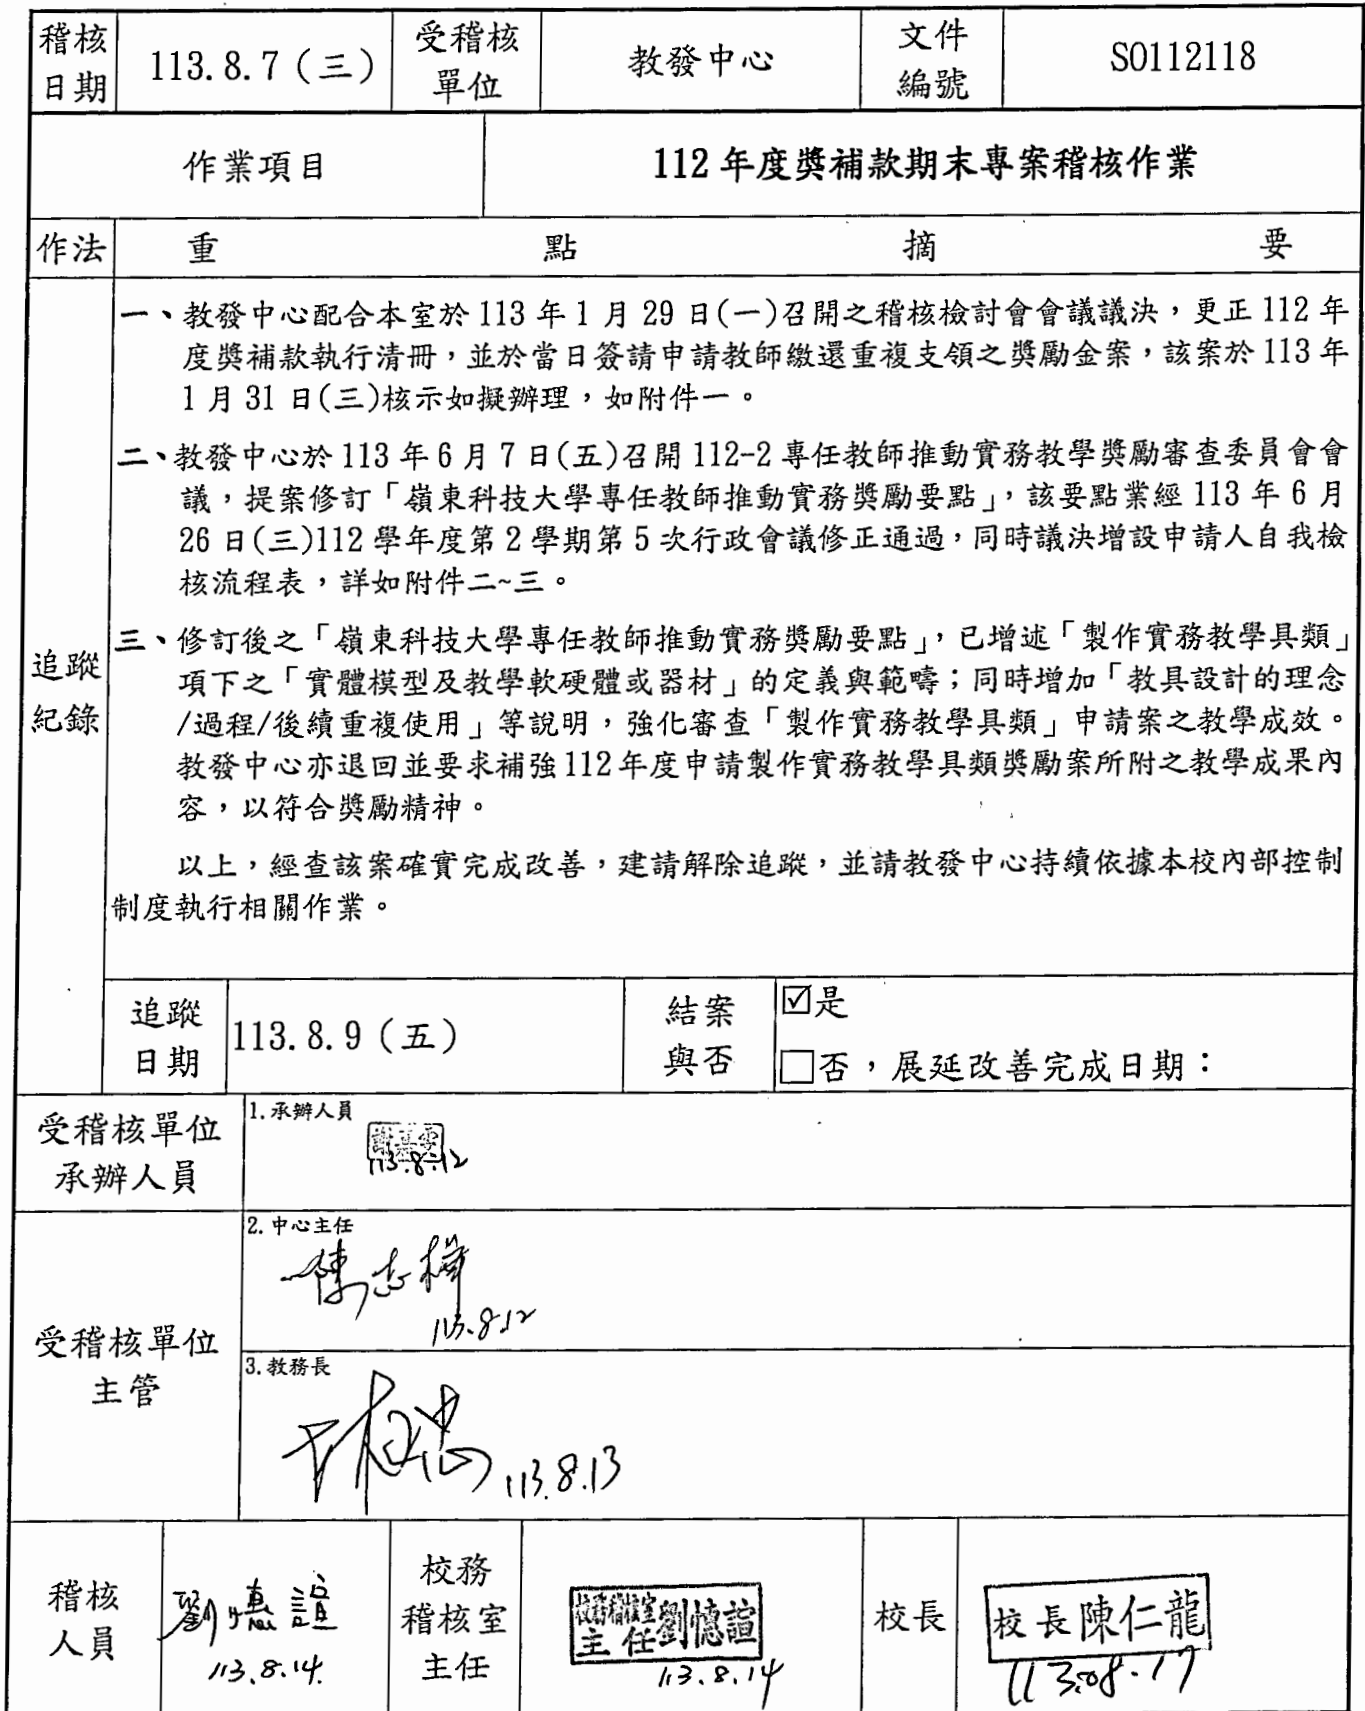 稽核日期 113.8.7（三） 受稽核單位 教發中心 文件編號 SO112118
作業項目 112 年度獎補款期末專案稽核作業
作法 重 點 摘 要
追蹤紀錄
一、教發中心配合本室於 113 年 1 月 29 日(一)召開之稽核檢討會會議議決，更正 112 年
度獎補款執行清冊，並於當日簽請申請教師繳還重複支領之獎勵金案，該案於 113 年
1 月 31 日(三)核示如擬辦理，如附件一。
二、教發中心於 113 年 6 月 7 日(五)召開 112-2 專任教師推動實務教學獎勵審查委員會會
議，提案修訂「嶺東科技大學專任教師推動實務獎勵要點」，該要點業經 113 年 6 月
26 日(三)112 學年度第 2 學期第 5 次行政會議修正通過，同時議決增設申請人自我檢
核流程表，詳如附件二~三。
三、修訂後之「嶺東科技大學專任教師推動實務獎勵要點」，已增述「製作實務教學具類」
項下之「實體模型及教學軟硬體或器材」的定義與範疇；同時增加「教具設計的理念
/過程/後續重複使用」等說明，強化審查「製作實務教學具類」申請案之教學成效。
教發中心亦退回並要求補強 112 年度申請製作實務教學具類獎勵案所附之教學成果內
容，以符合獎勵精神。
以上，經查該案確實完成改善，建請解除追蹤，並請教發中心持續依據本校內部控制
制度執行相關作業。
追蹤日期 113.8.9（五） 結案與否 ☑是
□否，展延改善完成日期：
受稽核單位承辦人員
1.承辦人員
113.8.12
受稽核單位主管
2.中心主任
113.8.12
3.教務長
113.8.13
稽核人員 113.8.14.
校務稽核室主任 校務稽核室主任劉憶諠 113.8.14
校長 校長陳仁龍 113.08.17